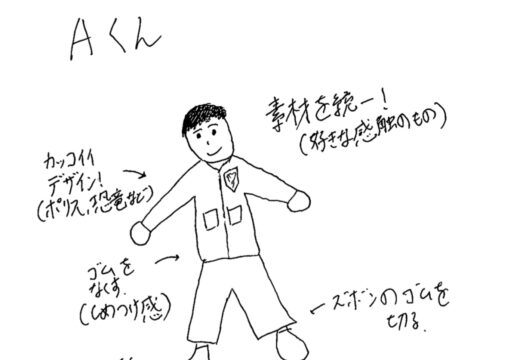 Aくん
素材を統一!
(好きな感触のもの)
カッコイイ
デザイン!
(ポリス、恐竜など)
ゴムを
なくす.
(しめつけ感)
ズボンのゴムを
切る.